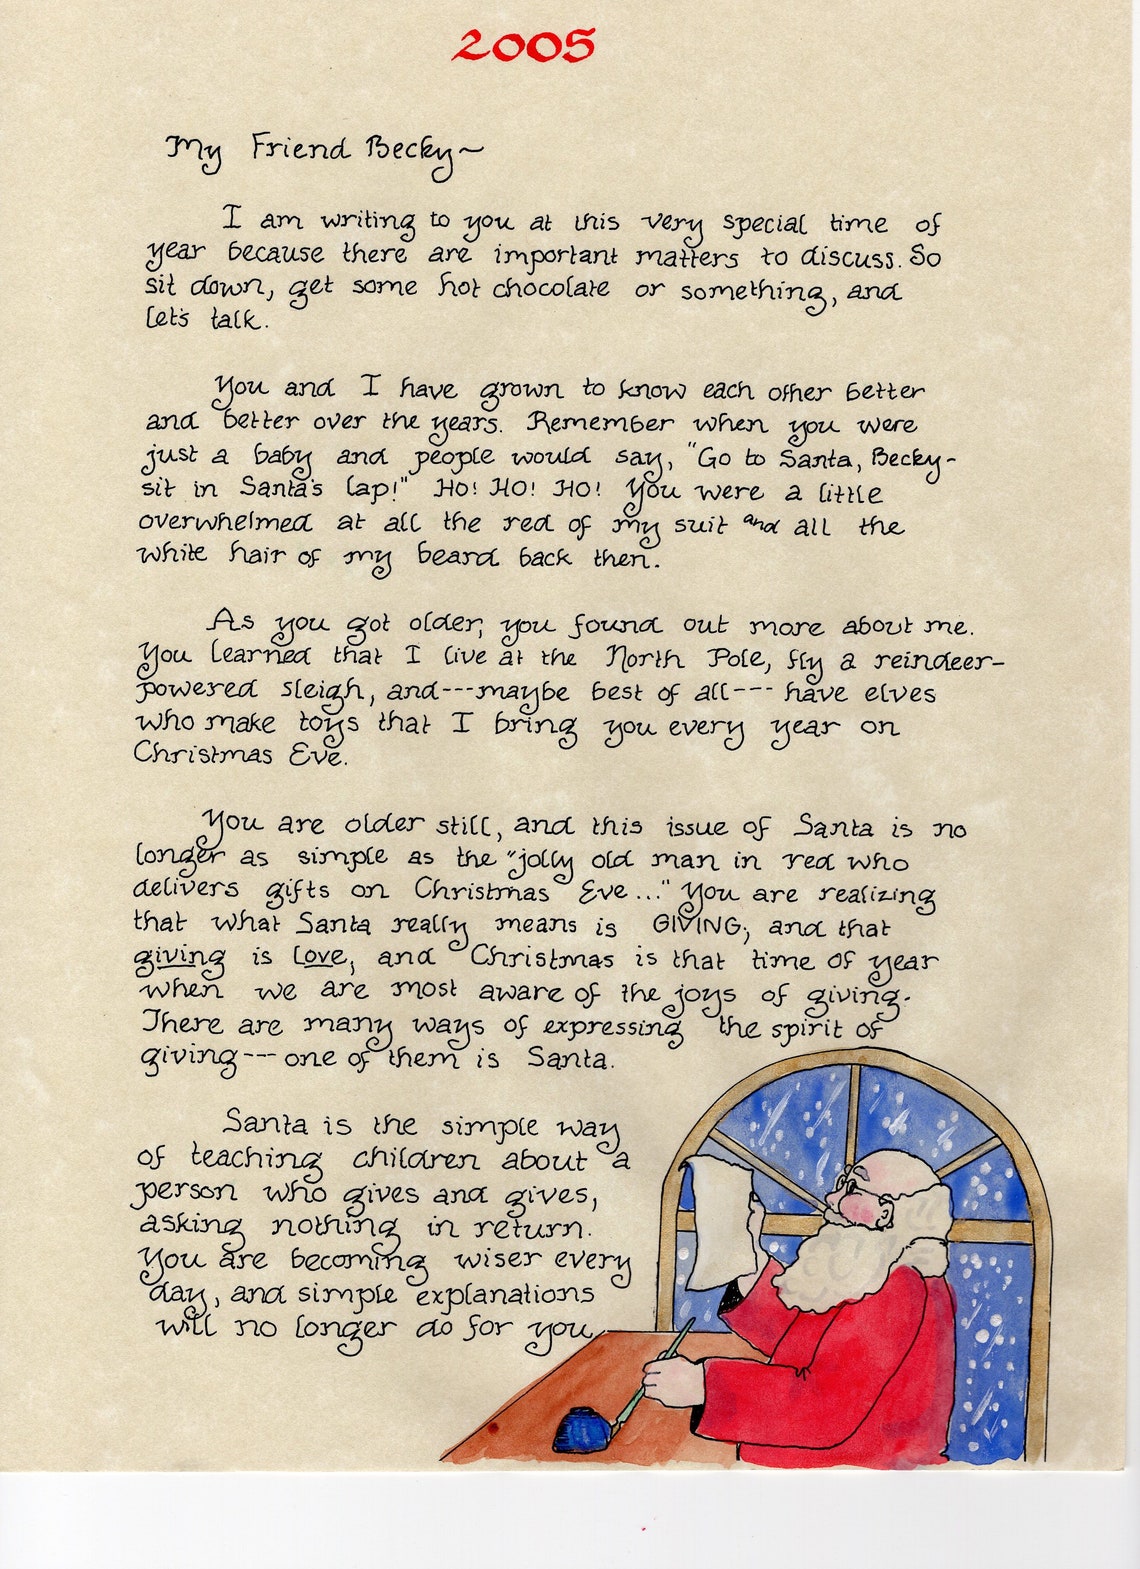 2005
My Friend Becky~
I am writing to you at this very special time of
year because there are important matters to discuss. So
sit down, get some hot chocolate or something, and
let's talk.
You and I have grown to know each other better
and better over the years. Remember when you were
just a baby and people would say, "Go to Santa, Becky-
sit in Santa's lap!" HO! HO! HO! You were a little
overwhelmed at all the red of my suit and all the
white hair of my beard back then.
As you got older, you found out more about me.
You learned that I live at the North Pole, fly a reindeer-
powered sleigh, and---maybe best of all--- have elves
who make toys that I bring you every year on
Christmas Eve.
You are older still, and this issue of Santa is no
longer as simple as the "jolly old man in red who
delivers gifts on Christmas Eve..." You are realizing
that what Santa really means is GIVING; and that
giving is love; and Christmas is that time of year
when we are most aware of the joys of giving.
There are many ways of expressing the spirit of
giving--- one of them is Santa.
Santa is the simple way
of teaching children about a
person who gives and gives,
asking nothing in return.
You are becoming wiser every
day, and simple explanations
will no longer do for you.